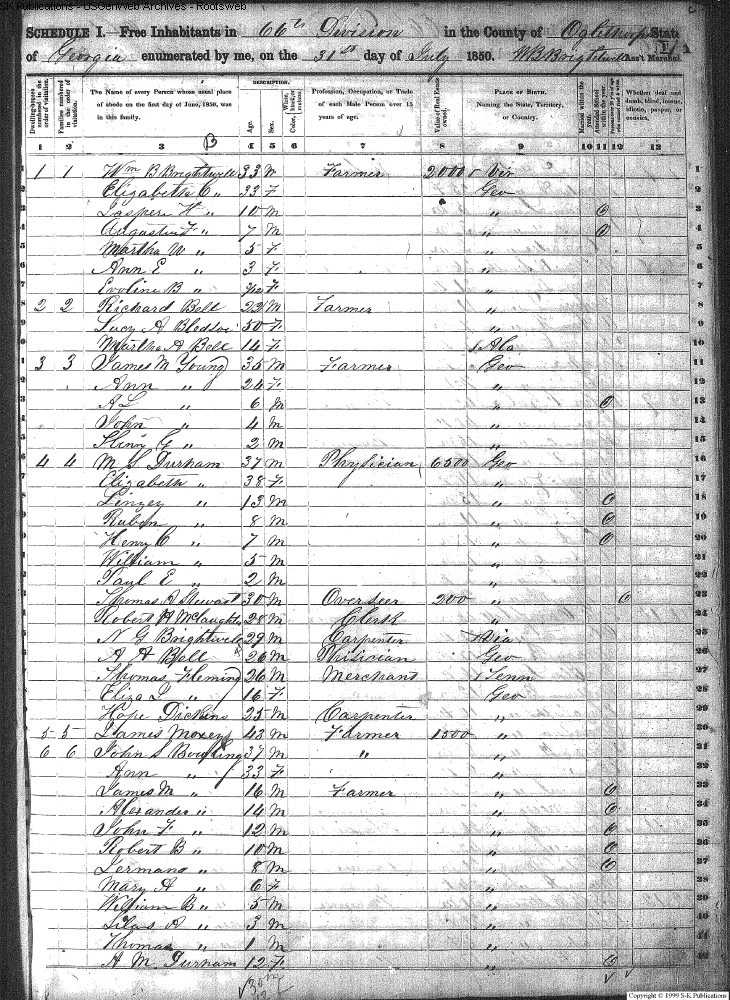 S-K Publications - USGenWeb Archives - Rootsweb
SCHEDULE I. Free Inhabitants in 66th Division in the County of Oglethorpe State
of Georgia enumerated by me, on the 31st day of July 1850. W B Brightwell Ass't Marshal.
Dwelling-houses numbered in the order of visitation.
Families numbered in the order of visitation.
The Name of every Person whose usual place of abode on the first day of June, 1850, was in this family.
DESCRIPTION.
Age.
Sex.
White, black, or mulatto.
Color,
Profession, Occupation, or Trade of each Male Person over 15 years of age.
Value of Real Estate owned.
PLACE OF BIRTH.
Naming the State, Territory, or Country.
Married within the year.
Attended School within the year.
Whether deaf and dumb, blind, insane, idiotic, pauper, or convict.
1 2 3 4 5 6 7 8 9 10 11 12 13
1 1 1 Wm B Brightwell 33 M Farmer 2000 Vir 1
2 Elizabeth C " 33 F Geo 2
3 Jasper H " 10 M " 3
4 Augustus F " 7 M " 4
5 Martha W " 5 F " 5
6 Ann E " 3 F " 6
7 Eveline B " F " 7
8 2 2 Richard Bell 22 M Farmer " 8
9 Lucy A Bledsoe 50 F " 9
10 Martha A Bell 14 F Ala 10
11 3 3 James M Young 35 M Farmer Geo 11
12 Ann " 24 F " 12
13 A L " 6 M " 13
14 John " 4 M " 14
15 G " 2 M " 15
16 4 4 M S Durham 37 M Physician 6500 Geo 16
17 Elizabeth " 38 F " 17
18 Linzey " 13 M " 18
19 Ruben " 8 M " 19
20 Henry C " 7 M " 20
21 William " 5 M " 21
22 Paul E " 2 M " 22
23 Thomas A Stewart 30 M Overseer 200 " 23
24 Robert H McLaughter 28 M Clerk " 24
25 N G Brightwell 29 M Carpenter Via 25
26 A A Bell 26 M Phisician Geo 26
27 Thomas Fleming 26 M Merchant Tenn 27
28 Eliza J " 16 F Geo 28
29 Hope Dickins 25 M Carpenter " 29
30 5 5 James 43 M Farmer 1000 " 30
31 6 6 John S Bowling 37 M " " 31
32 Ann " 33 F " 32
33 James M " 16 M Farmer " 33
34 Alexander " 14 M " 34
35 John F " 12 M " 35
36 Robert B " 10 M " 36
37 " 8 M " 37
38 Mary A " 6 F " 38
39 William B " 5 M " 39
40 Silas A " 3 M " 40
41 Thomas " 1 M " 41
42 A M Durham 12 F " 42
Copyright © 1999 S-K Publications